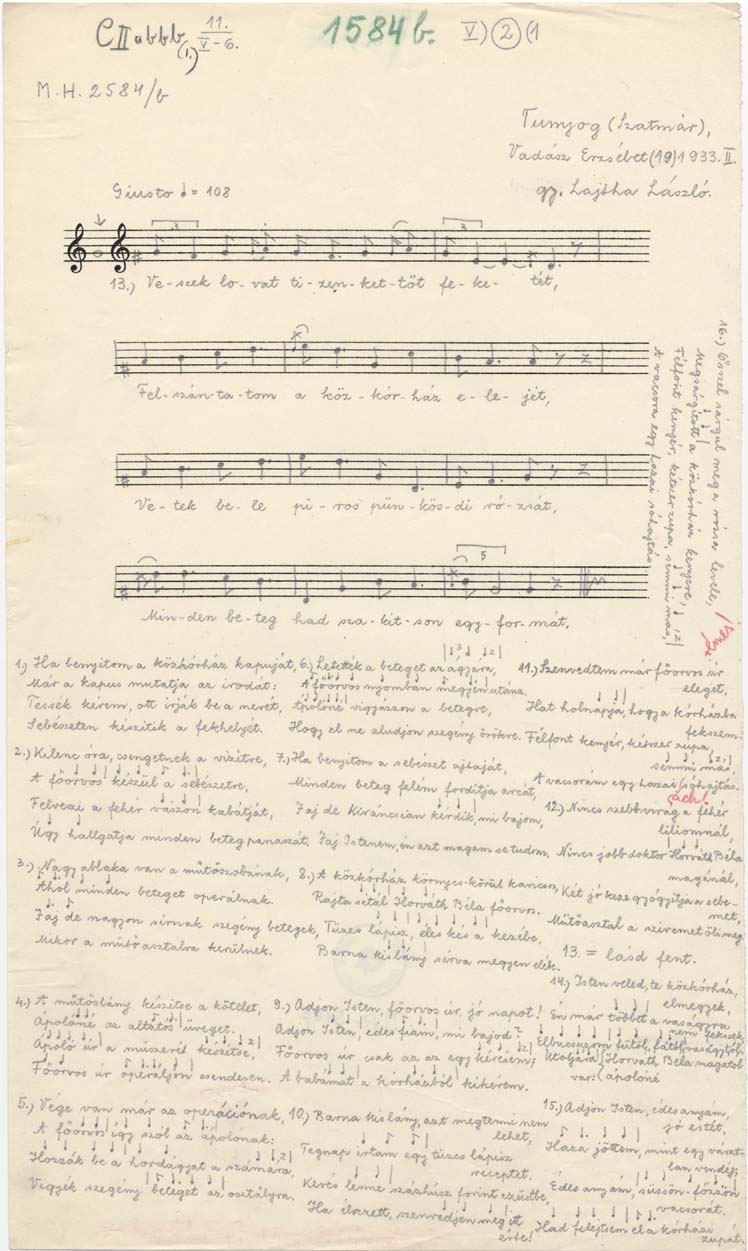 CII abbb (1.) 11. / V-6.
1584 b.
V) 2 (1
M.H. 2584/b
Tunyog (Szatmár),
Vadász Erzsébet (19) 1933. II.
gy. Lajtha László.
Giusto ♩= 108
13.) Ve-szek lo-vat ti-zen-ket-töt fe-ke-tét,
Fel-szán-ta-tom a köz-kór-ház e-le-jét,
Ve-tek be-le pi-ros pün-kös-di ró-zsát,
Min-den be-teg had sza-kit-son egy-for-mát.
16.) Ősszel sárgul meg a rózsa levele,
Megsárgitott a közkórház kenyere,
Félfont kenyér, kétszer zupa, semmi más,
A vacsora egy hazai sóhajtás
1.) Ha benyitom a közkórház kapuját,
Már a kapus mutatja az irodát:
Tessék kérem, ott irják be a nevét,
Sebészeten készitik a fekhelyét.
2.) Kilenc óra, csengetnek a vizitre,
A főorvos készül a sebészetre,
Felveszi a fehér vászon kabátját,
Úgy hallgatja minden beteg panaszát.
3.) Nagy ablaka van a műtőszobának,
Ahol minden beteget operálnak.
Faj de nagyon sirnak szegény betegek,
Mikor a műtőasztalra kerülnek.
4.) A műtőslány készitse a kötelet,
Ápolóné az altatós üveget.
Ápoló úr a műszerét készitse,
Főorvos úr operáljon csendesen.
5.) Vége van már az operációnak,
A főorvos igy szól az ápolónak:
Hozzák be a hordágyat a számára,
Vigyék szegény beteget az osztályra.
6.) Letették a beteget az ágyára,
A főorvos nyomban megyen utána.
Ápolóné vigyázzon a betegre,
Hogy el ne aludjon szegény örökre.
7.) Ha benyitom a sebészet ajtaját,
Minden beteg felém forditja arcát,
Faj de kiváncsian kérdik, mi bajom,
Faj Istenem, én azt magam se tudom.
8.) A közkórház környes-körül kancsos,
Rajta sétál Horváth Béla főorvos.
Tüzes lápisz, éles kés a kezébe,
Barna kislány sirva megyen elék.
9.) Adjon Isten, főorvos úr, jó napot!
Adjon Isten, édes fiam, mi bajod?
Főorvos úr csak az az egy kérésem;
A babámat a kórházból kikérem.
10.) Barna kislány, azt megtenni nem
lehet,
Tegnap irtam egy tüzes lápisz
receptet.
Kevés lenne százhúsz forint ezüstbe,
Ha élvezett, szenvedjen meg itt
érte!
11.) Szenvedtem már főorvos úr
eleget,
Hat holnapja, hogy a kórházba
fekszem.
Félfont kenyér, kétszer zupa,
semmi más,
A vacsorám egy hazai sóhajtás.
12.) Nincs szebb virág a fehér
liliomnál,
Nincs jobb doktor Horváth Béla
magánál,
Két jó keze gyógyitja a sebe-
met,
Műtőasztal a szivemet öli meg
13. = lásd fent.
14.) Isten veled, te közkórház,
elmegyek,
Én már többet a vaságyra
nem fekszek.
Elbucsuzom fűtől, fától, vaságytól,
Utoljára Horváth Béla magától
var: ápolóné
15.) Adjon Isten, édes anyám,
jó estét,
Haza jöttem, mint egy várat-
lan vendég,
Édes anyám, süssön-főzzön
vacsorát.
Had felejtsem el a kórházi
zupát.